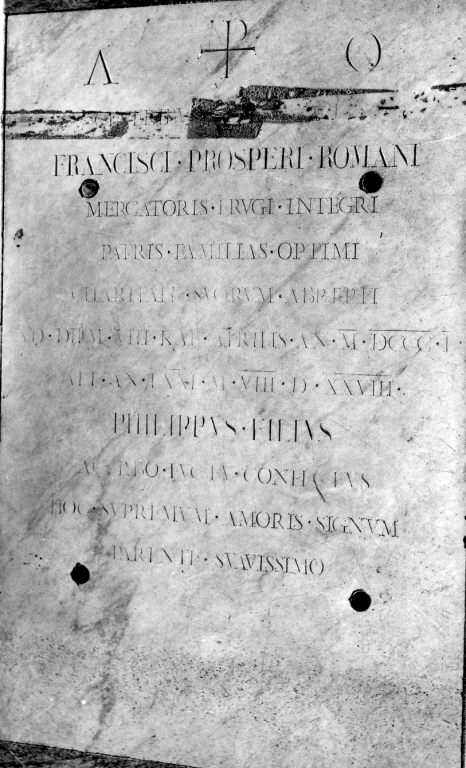 Α ⳨ Ω
FRANCISCI · PROSPERI · ROMANI
MERCATORIS · FRVGI · INTEGRI
PATRIS · FAMILIAS · OPTIMI
CHARITATE · SVORVM · ABREPTI
AD · DIEM · VIII · KAL · APRILIS · AN · M · DCCC · L ·
AET · AN · LXXI · M · VIII · D · XXVIII ·
PHILIPPVS · FILIVS
ACERBO · LVCTV · CONFECTVS
HOC · SVPREMVM · AMORIS · SIGNVM
PARENTI · SVAVISSIMO